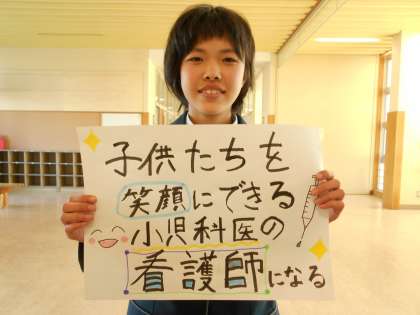 子供たちを
笑顔にできる
小児科医の
看護師になる